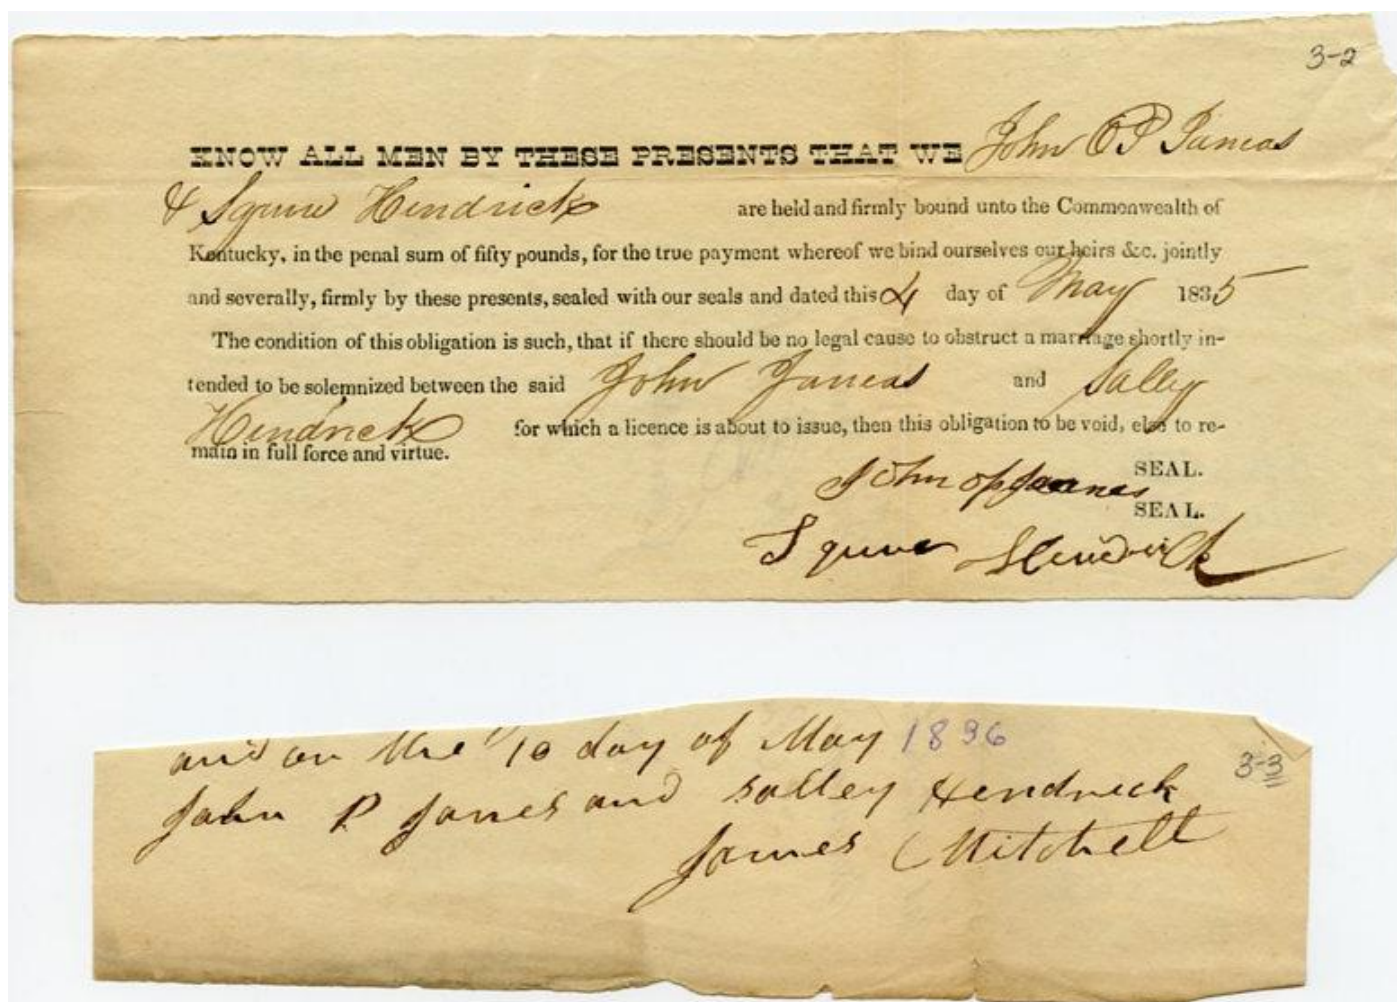 3-2
KNOW ALL MEN BY THESE PRESENTS THAT WE John OP Janeas
& Squire Hendrick are held and firmly bound unto the Commonwealth of
Kentucky, in the penal sum of fifty pounds, for the true payment whereof we bind ourselves our heirs &c. jointly
and severally, firmly by these presents, sealed with our seals and dated this 4 day of May 1835
The condition of this obligation is such, that if there should be no legal cause to obstruct a marriage shortly in-
tended to be solemnized between the said John Janeas and Sally
Hendrick for which a licence is about to issue, then this obligation to be void, else to re-
main in full force and virtue.
John op Jeanes SEAL.
SEAL.
Squire Hendrick
and on the 10 day of May 1836
3-3
John P Jones and salley Hendrick
James Mitchell